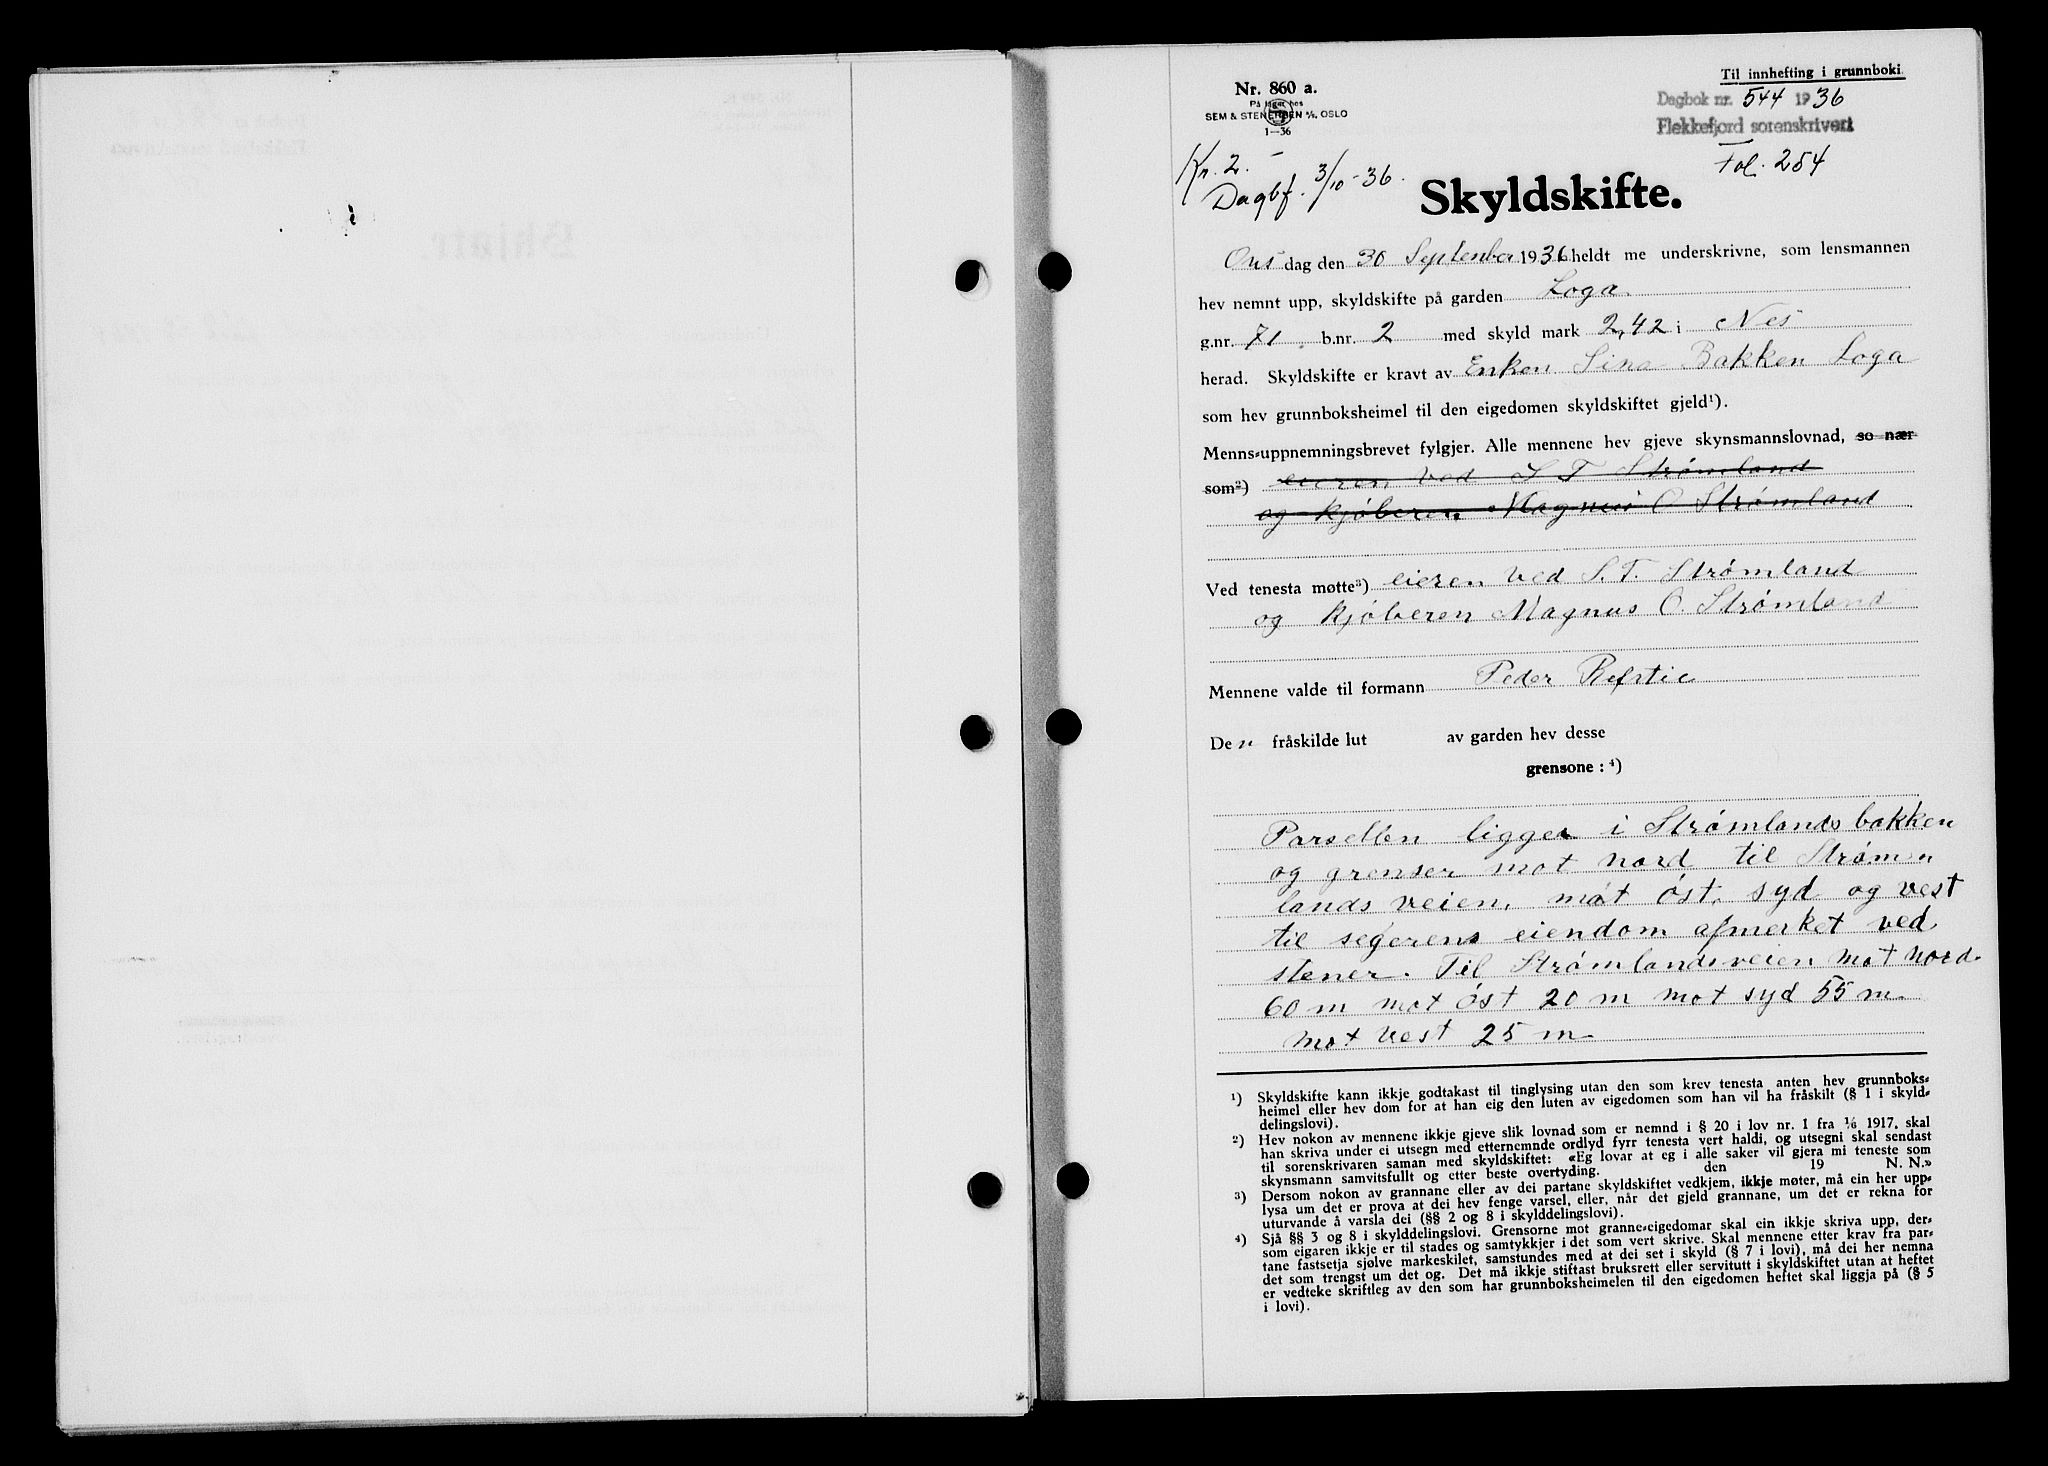 Til innhefting i grunnboki
Nr. 860 a.
På lager hos
SEM & STENERSEN A/S, OSLO
1—36
Dagbok nr. 544 1936
Flekkefjord sorenskriveri
Fol. 254
Kr. 2.–
Dagbf. 3/10-36.
Skyldskifte.
Ons dag den 30 September 1936 heldt me underskrivne, som lensmannen
hev nemnt upp, skyldskifte på garden Loga
g.nr. 71. b.nr. 2 med skyld mark 2,42 i Nes
herad. Skyldskifte er kravt av Enken Sina Bakken Loga
som hev grunnboksheimel til den eigedomen skyldskiftet gjeld¹).
Menns-uppnemningsbrevet fylgjer. Alle mennene hev gjeve skynsmannslovnad, so nær
som²) eieren ved S T Strømland
og kjøberen Magnus O Strømland
Ved tenesta møtte³) eieren ved S. T. Strømland
og kjøberen Magnus O. Strømland
Mennene valde til formann Peder Refstie
Den fråskilde lut av garden hev desse
grensone : ⁴)
Parsellen ligger i Strømlandsbakken
og grenser mot nord til Strøm-
landsveien, mot øst, syd og vest
til segerens eiendom afmerket ved
stener. Til Strømlandsveien mot nord.
60 m mot øst 20 m mot syd 55 m
mot vest 25 m
¹) Skyldskifte kann ikkje godtakast til tinglysing utan den som krev tenesta anten hev grunnboks-
heimel eller hev dom for at han eig den luten av eigedomen som han vil ha fråskilt (§ 1 i skyld-
delingslovi).
²) Hev nokon av mennene ikkje gjeve slik lovnad som er nemnd i § 20 i lov nr. 1 fra 1/6 1917, skal
han skriva under ei utsegn med etternemnde ordlyd fyrr tenesta vert haldi, og utsegni skal sendast
til sorenskrivaren saman med skyldskiftet: «Eg lovar at eg i alle saker vil gjera mi teneste som
skynsmann samvitsfullt og etter beste overtyding. den 19 N. N.»
³) Dersom nokon av grannane eller av dei partane skyldskiftet vedkjem, ikkje møter, må ein her upp-
lysa um det er prova at dei hev fenge varsel, eller, når det gjeld grannane, um det er rekna for
uturvande å varsla dei (§§ 2 og 8 i skylddelingslovi).
⁴) Sjå §§ 3 og 8 i skylddelingslovi. Grensorne mot granne-eigedomar skal ein ikkje skriva upp, der-
som eigaren ikkje er til stades og samtykkjer i det som vert skrive. Skal mennene etter krav fra par-
tane fastsetja sjølve markeskilet, samstundes med at dei set i skyld (§ 7 i lovi), må dei her nemna
det som trengst um det og. Det må ikkje stiftast bruksrett eller servitutt i skyldskiftet utan at heftet
er vedteke skriftleg av den som har grunnboksheimelen til den eigedomen heftet skal liggja på (§ 5
i lovi).